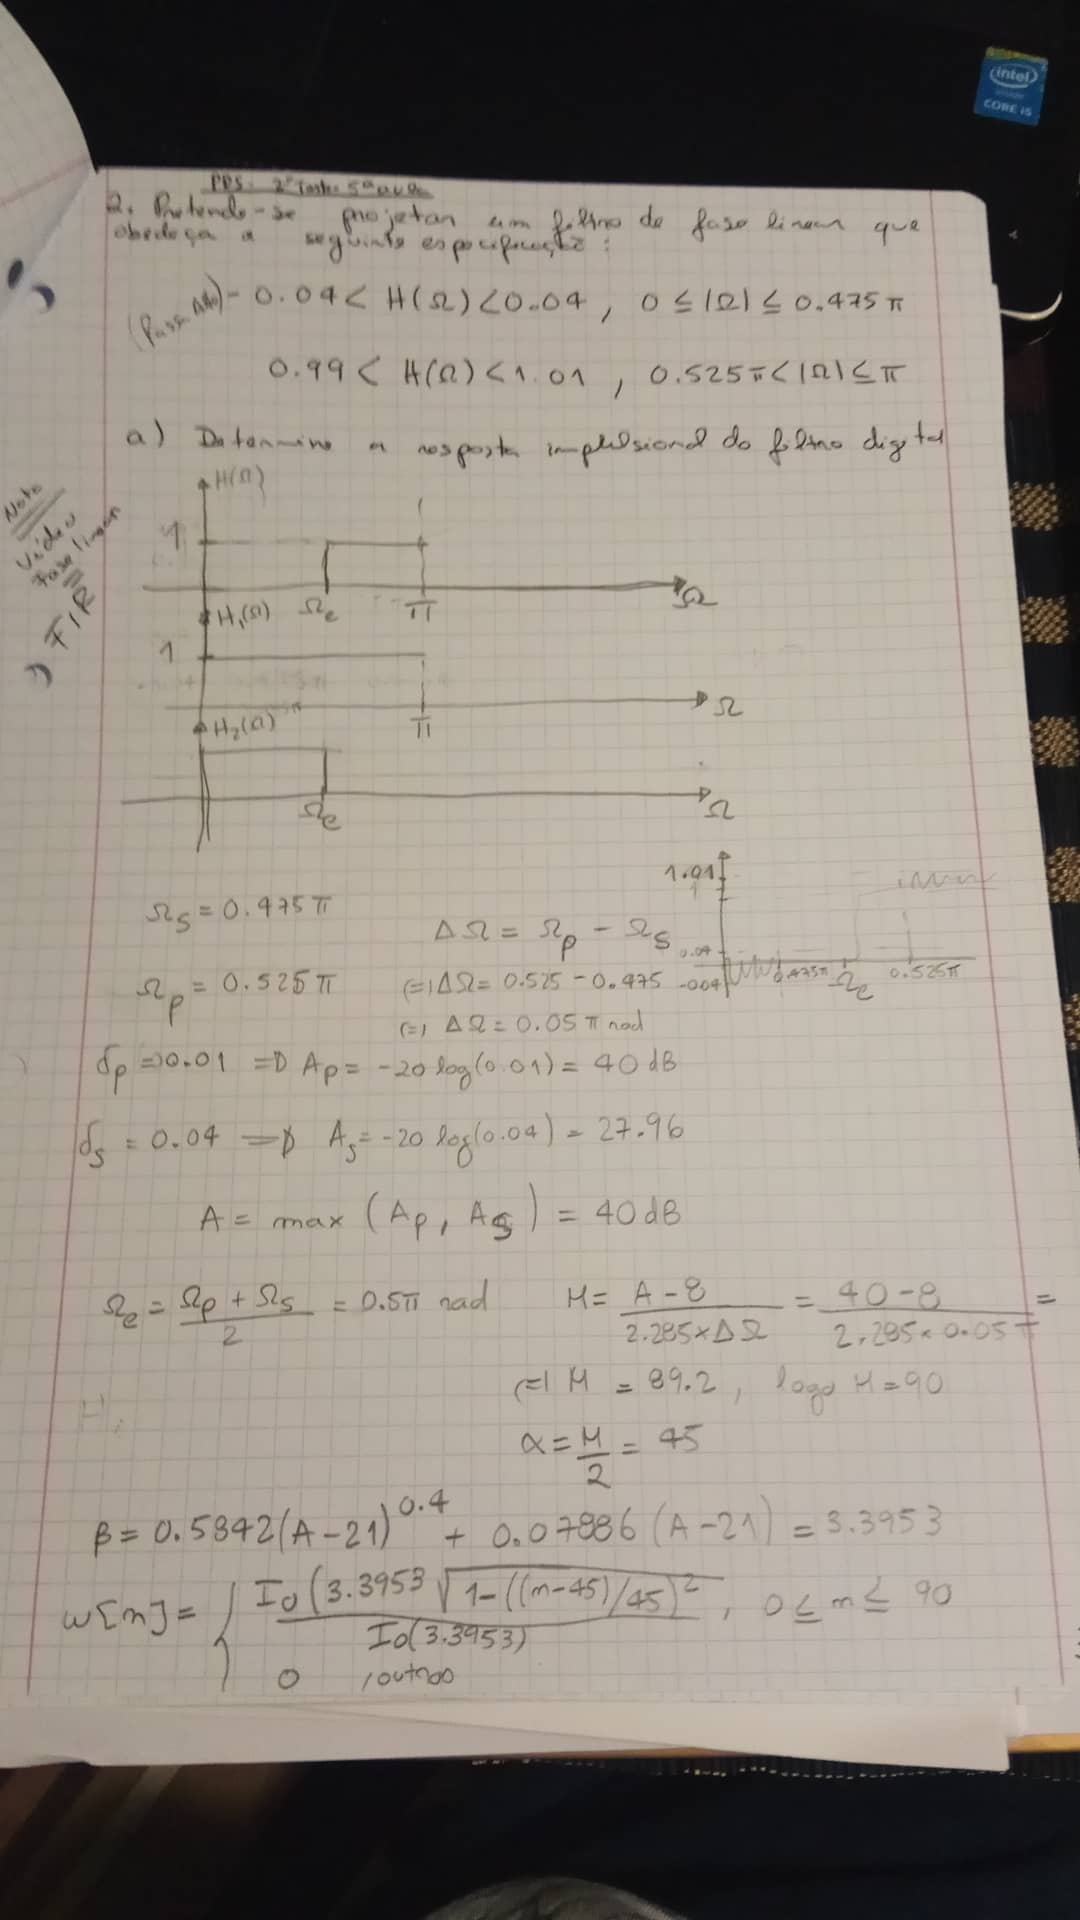 intel
inside
CORE i5
PDS. 2º Teste 5ª aula
2. Pretende-se projetar um filtro de fase linear que
obedeça a seguinte especificação:
(Passa Alto) -0.04 < H(Ω) < 0.04 , 0 ≤ |Ω| ≤ 0.475 π
0.99 < H(Ω) < 1.01 , 0.525π < |Ω| ≤ π
a) Determine a resposta impulsional do filtro digital
Nota
Fase linear
FIR
H(Ω)
1
Ωc π Ω
H₁(Ω)
1
π Ω
H₂(Ω)
Ωc Ω
1.01
1
0.04
-0.04 0.475π Ωc 0.525π
Ωs = 0.475 π
ΔΩ = Ωp - Ωs
Ωp = 0.525 π
(=) ΔΩ = 0.525 - 0.475
(=) ΔΩ = 0.05 π rad
δp = 0.01 => Ap = -20 log(0.01) = 40 dB
δs = 0.04 => As = -20 log(0.04) = 27.96
A = max (Ap, As) = 40 dB
Ωc = (Ωp + Ωs)/2 = 0.5π rad M = (A - 8)/(2.285×ΔΩ) = (40 - 8)/(2.285×0.05π) =
(=) M = 89.2 , logo M = 90
H₁
α = M/2 = 45
β = 0.5842(A-21)^0.4 + 0.07886 (A-21) = 3.3953
w[n] = { I₀(3.3953 √(1-((n-45)/45)²)/I₀(3.3953) , 0 ≤ n ≤ 90
0 , outros